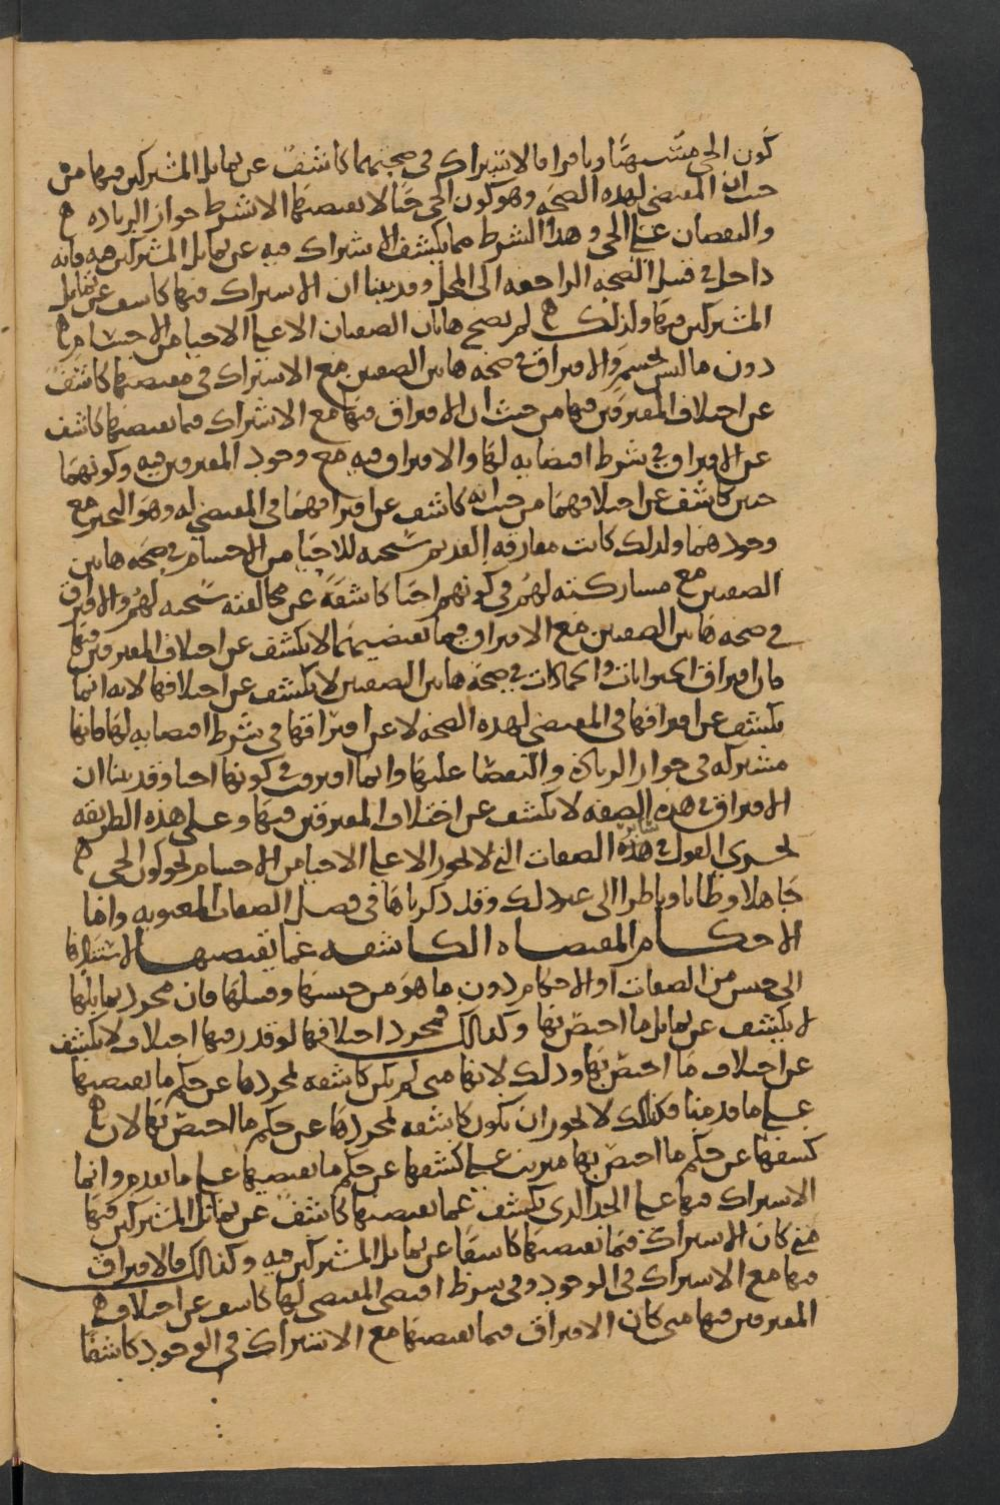 كون الحي مشتهيا ونافرا فالاشتراك في صحتهما كاشف عن تماثل المشتركين فيهما من
حيث ان المقتضي لهذه الصحه وهو كون الحي حيا لا يقتضيها الا بشرط جواز الزياده
والنقصان على الحي وهذا الشرط مما يكشف الاشتراك فيه عن تماثل المشتركين فيه فانه
داخل في قبيل الصحه الراجعه الى المحل وقد بينا ان الاشتراك فيها كاشف عن تماثل
المشتركين فيها ولذلك لم تصح هاتان الصفتان الا على الاحيا من الاجسام
دون ما ليس بجسم والافتراق في صحه هاتين الصفتين مع الاشتراك في مقتضيها كاشف
عن اختلاف المفترقين فيها من حيث ان الافتراق فيها مع الاشتراك فيما يقتضيها كاشف
عن الافتراق في شرط اقتضايه لها والافتراق فيه مع وجود المفترقين فيه وكونهما
حيين كاشف عن اختلافهما من حيث انه كاشف عن افتراقهما في المقتضي له وهو التحيز مع
وجودهما ولذلك كانت مفارقه القديم سبحنه للاحيا من الاجسام في صحه هاتين
الصفتين مع مشاركته لهم في كونهم احيا كاشفة عن مخالفته سبحنه لهم والافتراق
في صحه هاتين الصفتين مع الافتراق فيما يقتضيهما لا يكشف عن اختلاف المفترقين فيها
فان افتراق الحيوانات والجمادات في صحة هاتين الصفتين لا يكشف عن اختلافها لانه انما
يكشف عن افتراقها في المقتضي لهذه الصحه لا عن افتراقها في شرط اقتضايه لها فانها
مشتركه في جواز الزيادة والنقصان عليها وانما افترقت في كونها احيا وقد بينا ان
الافتراق في هذه الصفه لا يكشف عن اختلاف المفترقين فيها وعلى هذه الطريقه
يجري القول في سائر هذه الصفات التي لا تجوز الا على الاحيا من الاجسام نحو كون الحي
جاهلا وظانا وناظرا الى غير ذلك وقد ذكرناها في فصل الصفات المعنويه واما
الاحكام المقتضاه الكاشفه عما يقتضيها لاستنادها
الى جنس من الصفات او الاحكام دون ما هو من جنسها وقبيلها فان مجرد تماثلها
لا يكشف عن تماثل ما اختص بها وكذلك فمجرد اختلافها لو قدر فيها اختلاف لا يكشف
عن اختلاف ما اختص بها وذلك لانها متى لم تكن كاشفه بمجردها عن حكم ما يقتضيها
على ما قدمنا فكذلك لا يجوز ان تكون كاشفه بمجردها عن حكم ما اختص بها لان
كشفها عن حكم ما اختص بها مترتب على كشفها عن حكم ما يقتضيها على ما تقدم وانما
الاشتراك فيها على الحد الذي يكشف عما يقتضيها كاشف عن تماثل المشتركين فيها
متى كان الاشتراك فيما يقتضيها كاشفا عن تماثل المشتركين فيه وكذلك فالافتراق
فيها مع الاشتراك في الوجود وفي شرط اقتضى المقتضي لها كاشف عن اختلاف
المفترقين فيها متى كان الافتراق فيما يقتضيها مع الاشتراك في الوجود كاشفا